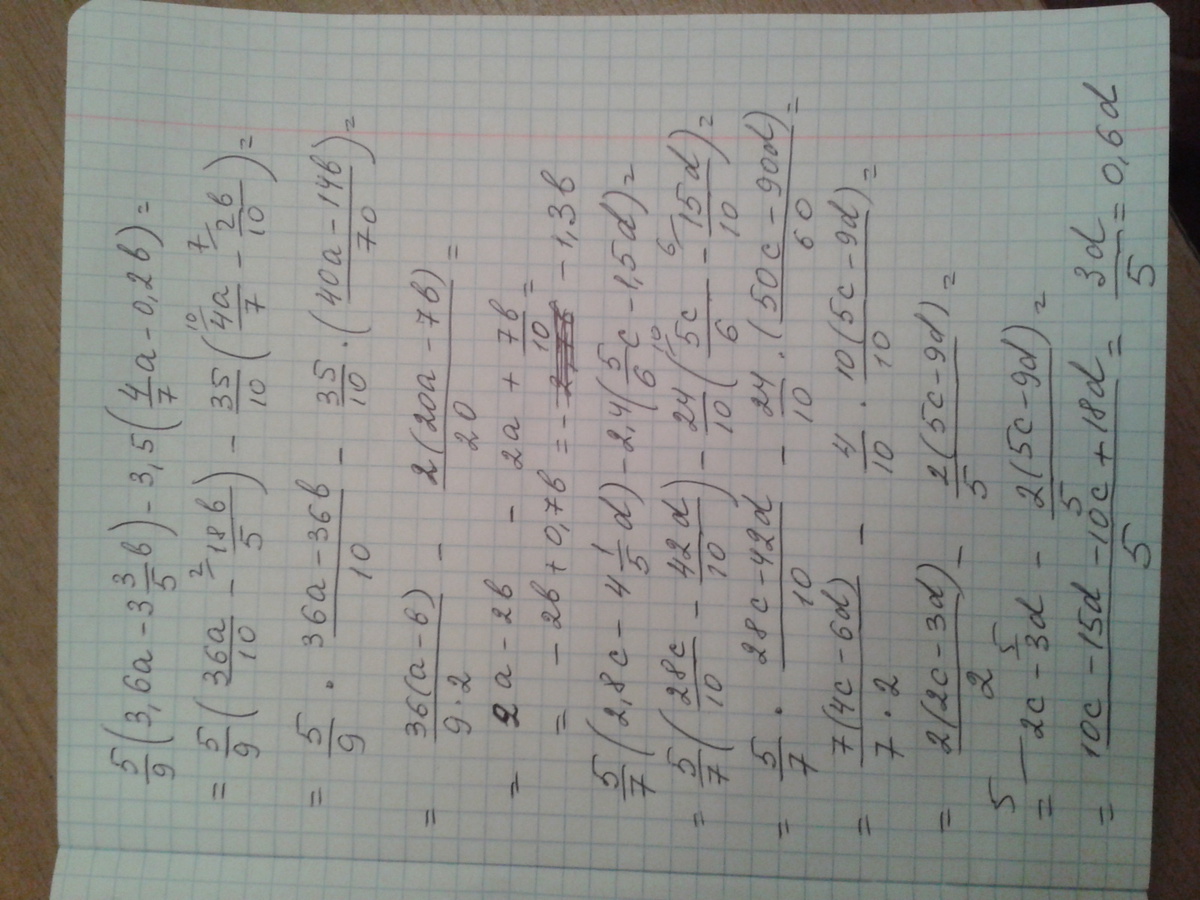 5/9 (3,6a - 3 3/5 b) - 3,5 (4/7 a - 0,2b) =
= 5/9 (36a/10 - 2/ 18b/5) - 35/10 (10/ 4a/7 - 7/ 2b/10) =
= 5/9 · 36a - 36b/10 - 35/10 · (40a - 14b)/70 =
= 36(a - b)/9·2 - 2(20a - 7b)/20 =
= 2a - 2b - 2a + 7b/10 =
= - 2b + 0,7b = - 1,3b
5/7 (2,8c - 4 1/5 d) - 2,4 (5/6 c - 1,5d) =
= 5/7 (28c/10 - 42d/10) - 24/10 (10/ 5c/6 - 6/ 15d/10) =
= 5/7 · 28c - 42d/10 - 24/10 · (50c - 90d)/60 =
= 7(4c - 6d)/7·2 - 4/10 · 10(5c - 9d)/10 =
= 2(2c - 3d)/2 - 2(5c - 9d)/5 =
= 5/ 2c - 5/ 3d - 2(5c - 9d)/5 =
= 10c - 15d - 10c + 18d/5 = 3d/5 = 0,6d